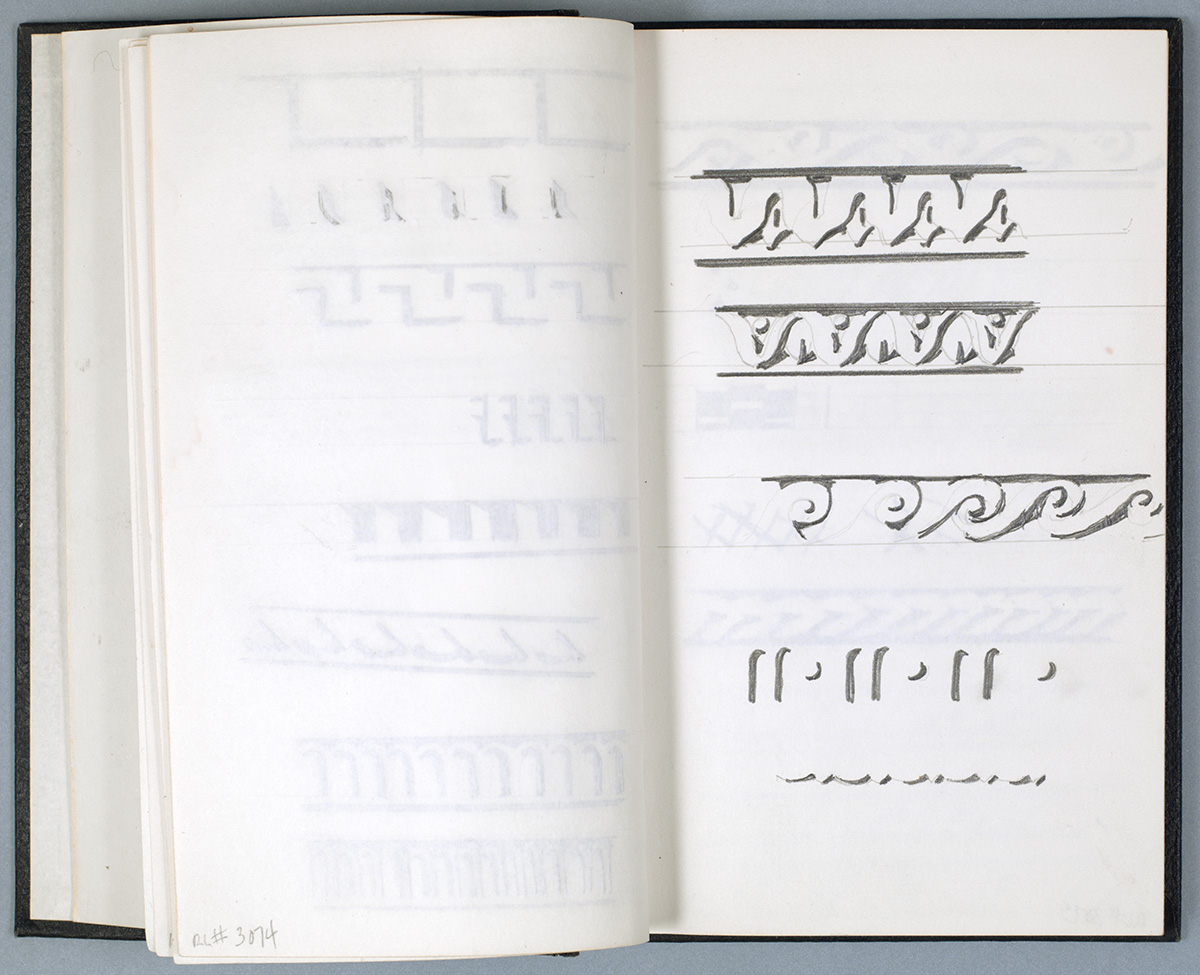 RL# 3074